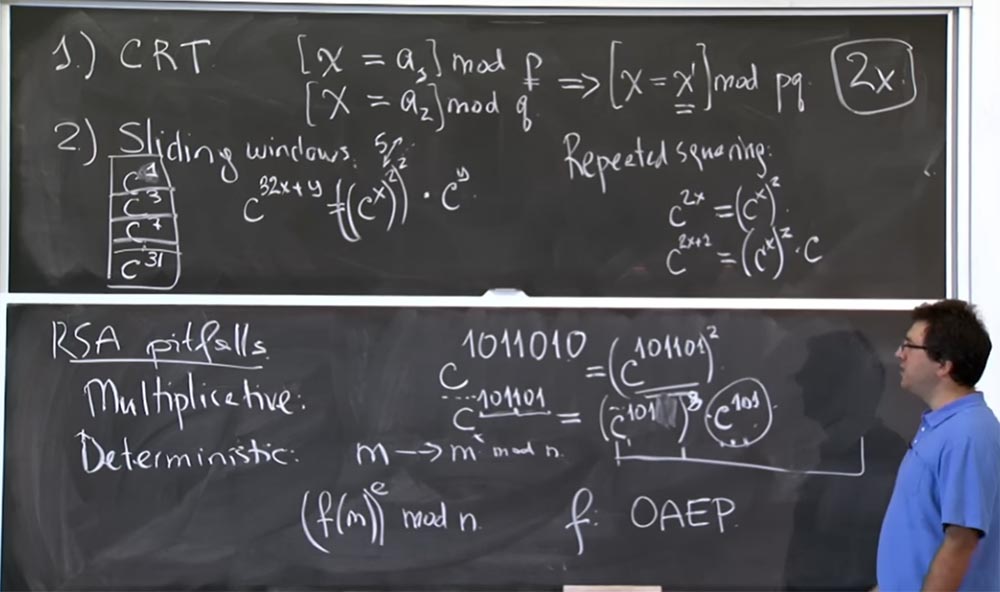 1.) CRT. [X = a₁] mod p ⇒ [X = x'] mod pq. 2x.
[X = a₂] mod q
2.) Sliding windows. 5
C¹
C³
C⁷
C³¹
C^(32x+y) = ((C^x)²)² · C^y
Repeated squaring:
C^(2x) = (C^x)².
C^(2x+2) = (C^x)² · C
RSA pitfalls.
Multiplicative:
Deterministic: m → m mod n.
C^1011010 = (C^101101)²
C^…101101 = (C^…101)⁸ · C^101
(f(m))^e mod n. f: OAEP.